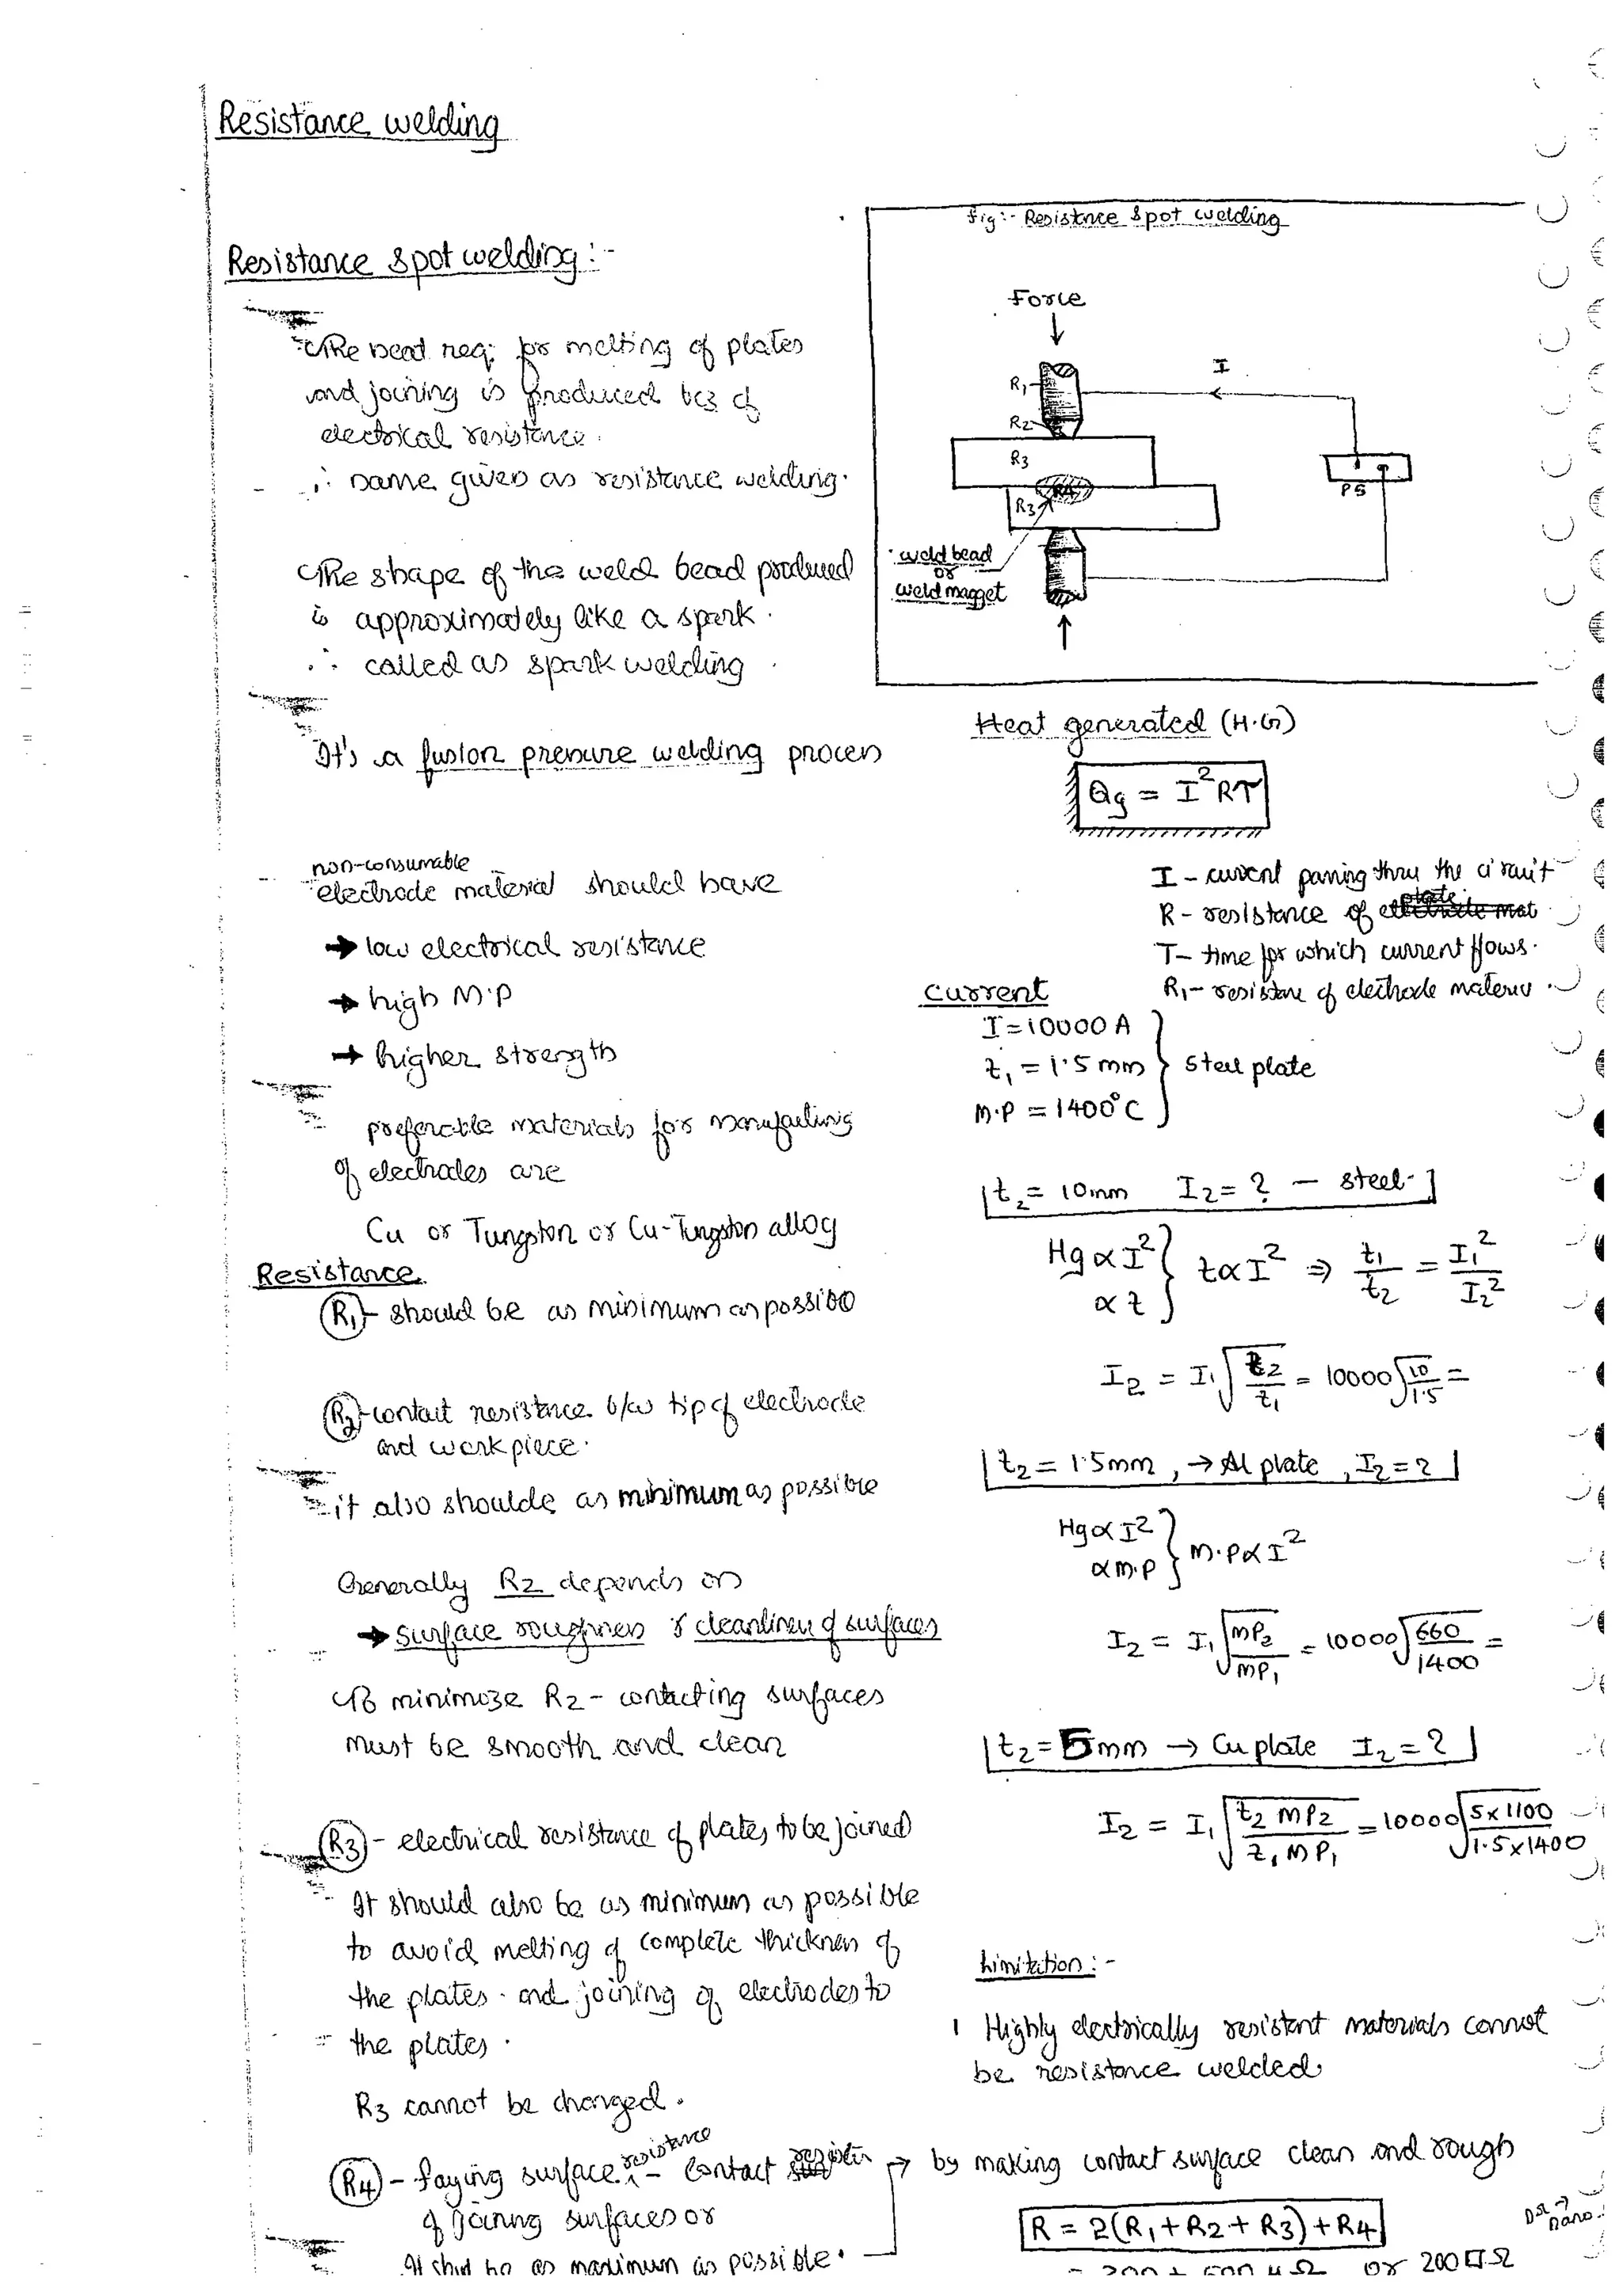 Resistance welding
Resistance spot welding :-
The heat req: for melting of plates
and joining is produced bcz of
electrical resistance.
∴ name given as resistance welding.
The shape of the weld bead produced
is approximately like a spark.
∴ called as spark welding
It's a fusion pressure welding process
non-consumable
electrode material should have
→ low electrical resistance
→ high M.P
→ higher strength
preferable materials for manufacturing
of electrodes are
Cu or Tungston or Cu-Tungston alloy
Resistance
R1 - should be as minimum as possible
R2 - contact resistance b/w tip of electrode
and workpiece.
it also shoulde as minimum as possible
Generally R2 depends on
→ surface roughness & cleanliness of surfaces
To minimoze R2 - contacting surfaces
must be smooth and clean
R3 - electrical resistance of plates to be joined
It should also be as minimum as possible
to avoid melting of complete thickness of
the plates and joining of electrodes to
the plates.
R3 cannot be changed.
resistance
R4 - faying surface - contact
of joining surfaces or
It shud be as maximum as possible.
fig:- Resistnce spot welding
Force
I
R1
R2
R3
R4
R3
PS
weld bead
or
weld magget
Heat generated (H.G)
Qg = I²RT
I - current passing thru the circuit
R - resistance of plate
T - time for which current flows.
R1 - resistance of electrode material
Current
I = 10000 A
t1 = 1.5 mm } Steel plate
M.P = 1400°C
t2 = 10mm I2 = ? - steel.
Hg ∝ I² } t ∝ I² ⇒ t1/t2 = I1²/I2²
∝ t
I2 = I1 √(t2/t1) = 10000 √(10/1.5) =
t2 = 1.5mm, → Al plate, I2 = ?
Hg ∝ I² } M.P ∝ I²
∝ M.P
I2 = I1 √(MP2/MP1) = 10000 √(660/1400) =
t2 = 5mm → Cu plate I2 = ?
I2 = I1 √(t2 MP2/t1 MP1) = 10000 √(5x1100/1.5x1400)
Limitation :-
1 Highly electrically resistant materials cannot
be resistance welded
→ by making contact surface clean and rough
R = 2(R1 + R2 + R3) + R4
or 200